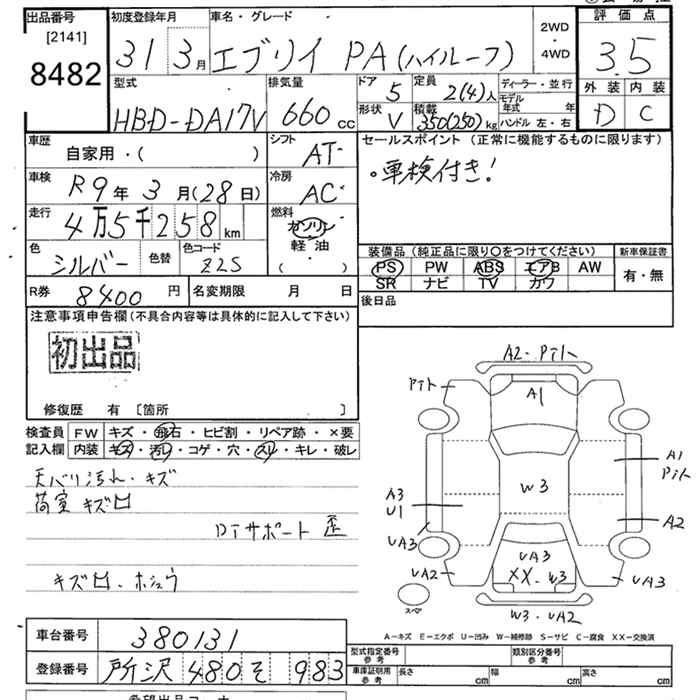 出品番号
[2141]
8482
初度登録年月
31 3月
車名・グレード
エブリイ PA(ハイルーフ)
2WD
4WD
評価点
3.5
外装 内装
D C
型式
HBD-DA17V
排気量
660cc
ドア 5
形状 V
定員 2(4)人
積載 350(250)kg
ディーラー・並行
モデル年式 年
ハンドル 左・右
車歴
自家用・( )
シフト AT
車検 R9年3月(28日)
冷房 AC
走行 4万5千258km
燃料 ガソリン
軽・油
( )
色 シルバー
色替
色コード Z2S
R券 8400円
名変期限 月 日
セールスポイント (正常に機能するものに限ります)
。車検付き!
装備品 (純正品に限り○をつけてください)
新車保証書
PS PW ABS エアB AW
SR ナビ TV カワ
有・無
後日品
注意事項申告欄(不具合内容等は具体的に記入して下さい)
初出品
修復歴 有 [箇所 ]
検査員記入欄
FW キズ・飛石・ヒビ割・リペア跡・×要
内装 キズ・汚レ・コゲ・穴・スレ・キレ・破レ
天バリ汚れ・キズ
荷室 キズ凹
DTサポート 歪
キズ凹・ホシュウ
A2・Pトト
Pトト
A1
A1
Pトト
W3
A3
U1
A2
UA3
UA3
UA2
XX・W3
UA3
スペア
W3・UA2
A−キズ E−エクボ U−凹み W−補修跡 S−サビ C−腐食 XX−交換済
車台番号 380131
登録番号 所沢 480 そ 983
型式指定番号 参考
類別区分番号 参考
車庫証明用 参考
長さ cm
幅 cm
高さ cm